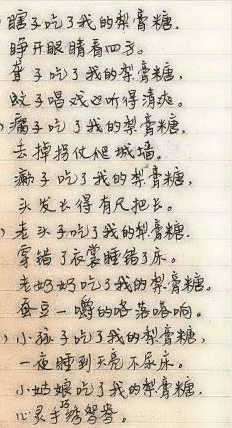 瞎子吃了我的梨膏糖,
睁开眼睛看四方。
聋子吃了我的梨膏糖,
蚊子唱戏也听得清爽。
瘸子吃了我的梨膏糖,
去掉拐仗爬城墙。
癞子吃了我的梨膏糖,
头发长得有尺把长。
老头子吃了我的梨膏糖.
穿错了衣裳睡错了床。
老奶奶吃了我的梨膏糖。
蚕豆一嚼的咯落咯响。
小孩子吃了我的梨膏糖,
一夜睡到天亮不尿床。
小姑娘吃了我的梨膏糖.
心灵手巧绣鸳鸯。